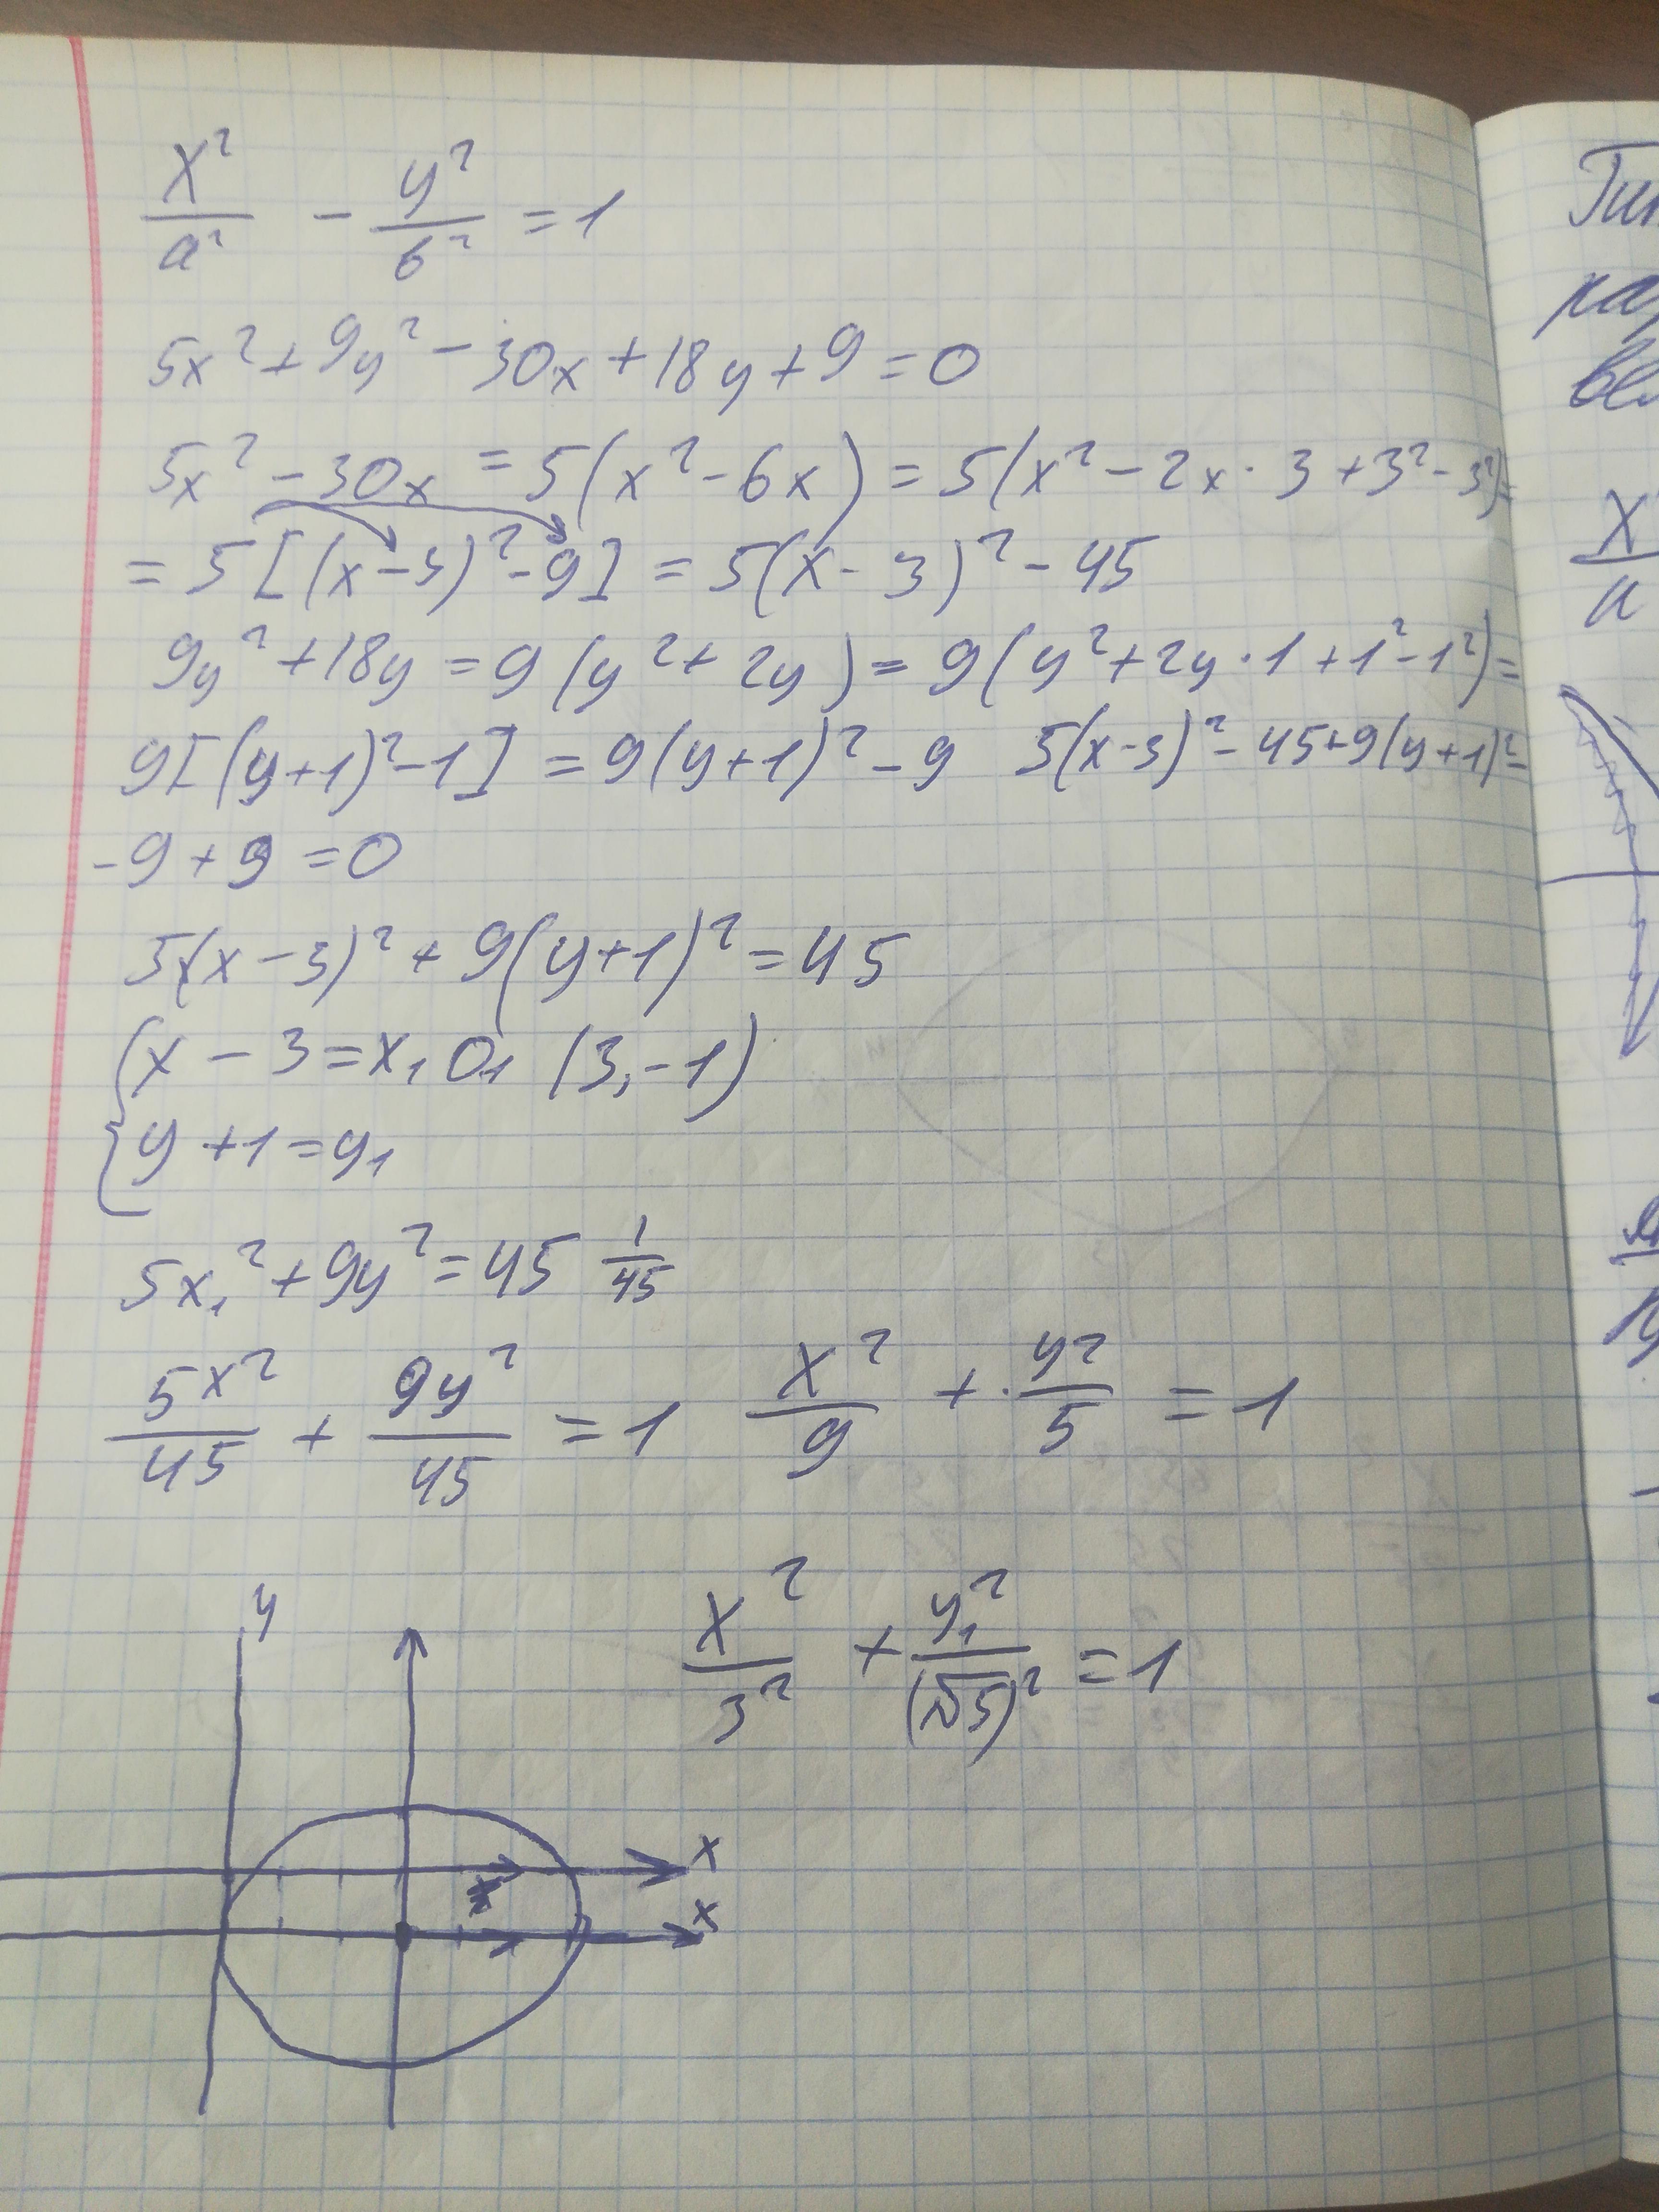 x²/a² - y²/b² = 1
5x² + 9y² - 30x + 18y + 9 = 0
5x² - 30x = 5(x² - 6x) = 5(x² - 2x · 3 + 3² - 3²) =
= 5[(x - 3)² - 9] = 5(x - 3)² - 45
9y² + 18y = 9(y² + 2y) = 9(y² + 2y · 1 + 1² - 1²) =
9[(y+1)² - 1] = 9(y+1)² - 9 5(x-3)² - 45 + 9(y+1)² -
- 9 + 9 = 0
5(x - 3)² + 9(y+1)² = 45
{x - 3 = x₁ O₁ (3, -1)
{y + 1 = y₁
5x₁² + 9y² = 45 1/45
5x²/45 + 9y²/45 = 1 x²/9 + y²/5 = 1
x²/3² + y₁²/(√5)² = 1
y
x
x
x
a